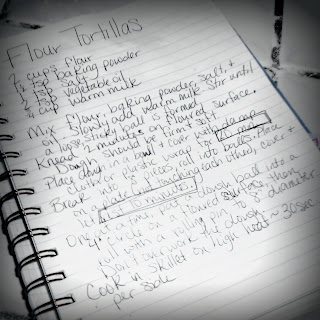 Flour Tortillas
2 cups flour
1 tsp baking powder
1 tsp salt
2 tsp vegetable oil
3/4 cup warm milk
Mix flour, baking powder, salt, +
oil. Slowly add warm milk. Stir until
a loose, sticky ball is formed.
Knead 2 min. on floured surface.
Dough should be firm + soft.
Place dough in a bowl + cover with damp
cloth or plastic wrap for 20 min.
Break into 8 pieces, roll into balls. Place
on plate not touching each other, cover +
10 minutes.
One at a time, pat a dough ball into a
circle on a floured surface, then
roll with a rolling pin to 8" diameter.
Don't over work the dough.
Cook in skillet on high heat ~ 30 sec
per side